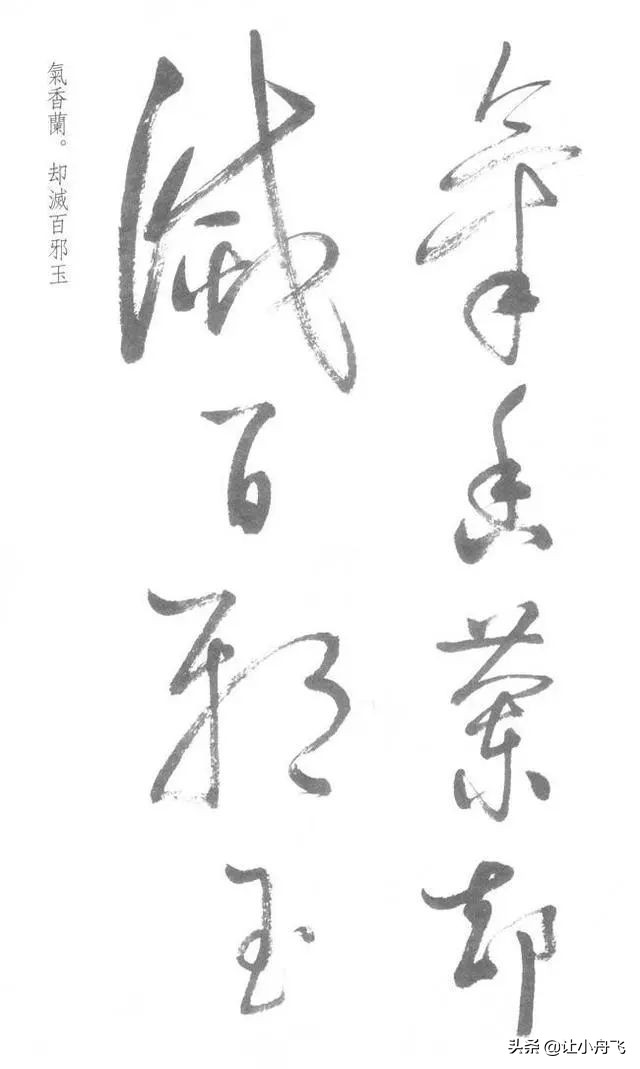 氣香蘭却
滅百邪玉
氣香蘭。却滅百邪玉
头条 @让小舟飞